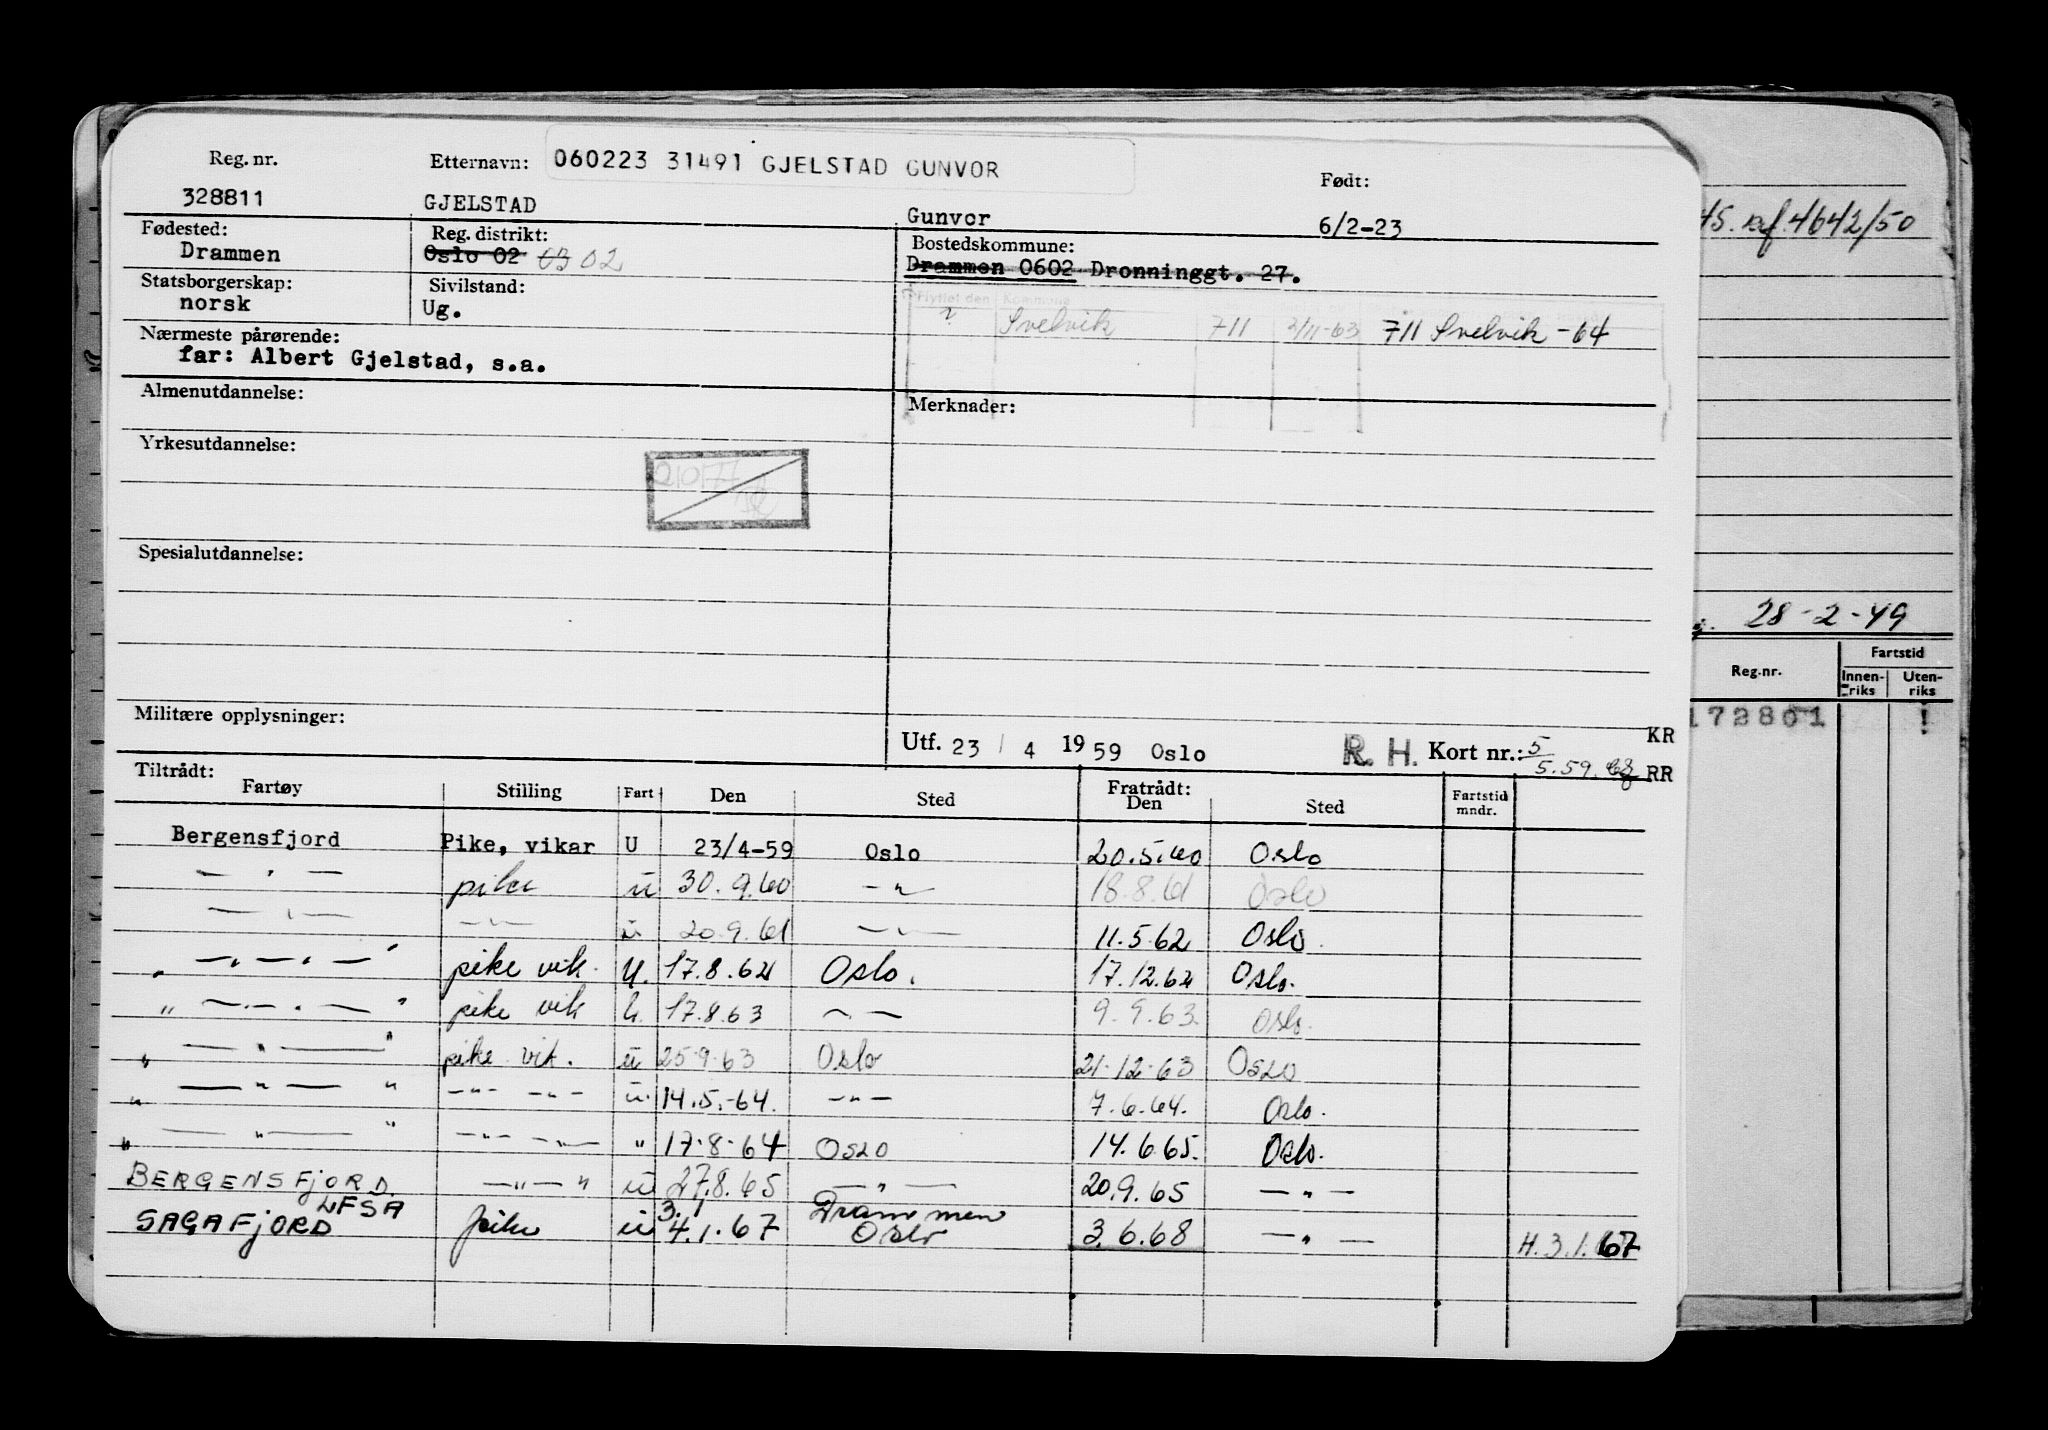 Reg. nr. Etternavn: 060223 31491 GJELSTAD GUNVOR Født:
328811 GJELSTAD Gunvor 6/2-23
Fødested: Reg. distrikt: Bostedskommune:
Drammen Oslo 02 03 02 Drammen 0602 Dronninggt. 27.
Statsborgerskap: Sivilstand: Flyttet den Kommune
norsk Ug. Svelvik 711 2/11-63 711 Svelvik -64
Nærmeste pårørende:
far: Albert Gjelstad, s.a.
Almenutdannelse: Merknader:
Yrkesutdannelse:
21077
Spesialutdannelse:
Militære opplysninger:
Utf. 23 / 4 1959 Oslo R. H. Kort nr.: 5 KR
5.59. RR
Tiltrådt: Fratrådt:
Fartøy Stilling Fart Den Sted Den Sted Fartstid mndr.
Bergensfjord Pike, vikar U 23/4-59 Oslo 20.5.60 Oslo
— " — pike u 30.9.60 — " — 18.8.61 Oslo
— " — — " — u 20.9.61 — " — 11.5.62 Oslo.
" — " — " — " pike vik. U. 17.8.62 Oslo. 17.12.62 Oslo.
" — " — " — " pike vik u. 17.8.63 — " — 9.9.63. Oslo.
" — " — " pike vik. u 25.9.63 Oslo 21.12.63 Oslo
" — " — " — " — — " — u. 14.5.-64. — " — 7.6.64. Oslo.
" — " — " — " — — " — " 17.8.64 Oslo 14.6.65. Oslo.
BERGENSFJORD — " — " u 27.8.65 — " — 20.9.65 — " —
NFSA 3.1 Drammen
SAGAFJORD pike u 4.1.67 Oslo 3.6.68 — " — H. 3.1.67
45. 4642/50
28-2-49
Reg.nr. Fartstid
Innen-riks Uten-riks
172801